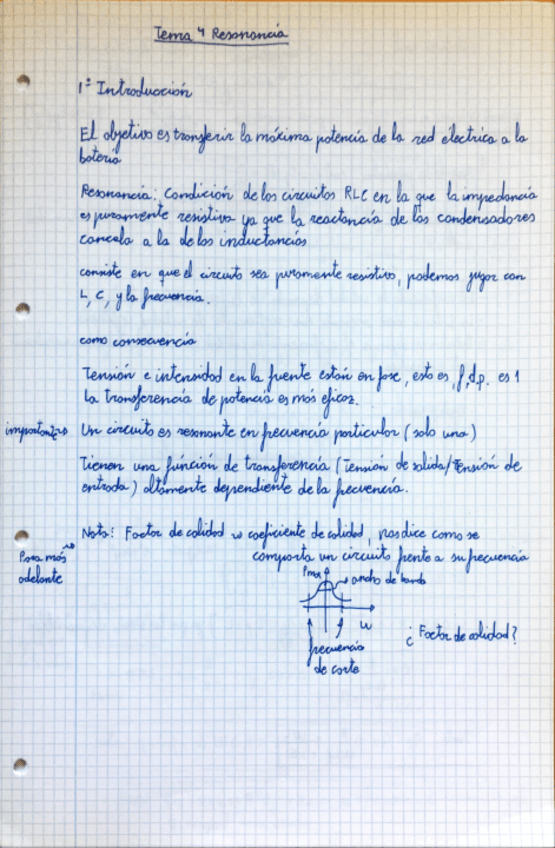 Tema 4 Resonancia
1º Introducción
El objetivo es transferir la máxima potencia de la red eléctrica a la
batería
Resonancia: Condición de los circuitos RLC en la que la impedancia
es puramente resistiva ya que la reactancia de los condensadores
cancela a la de los inductancias
consiste en que el circuito sea puramente resistivo, podemos jugar con
L, C, y la frecuencia.
como consecuencia
Tensión e intensidad en la fuente están en fase, esto es, f.d.p. es 1
La transferencia de potencia es más eficaz.
importante → Un circuito es resonante en frecuencia particular (solo una)
Tienen una función de transferencia (Tensión de salida/Tensión de
entrada) altamente dependiente de la frecuencia.
Nota: Factor de calidad o coeficiente de calidad, nos dice como se
comporta un circuito frente a su frecuencia
Para más
adelante
Pmax
ancho de banda
w
frecuencia
de corte
¿Factor de calidad?